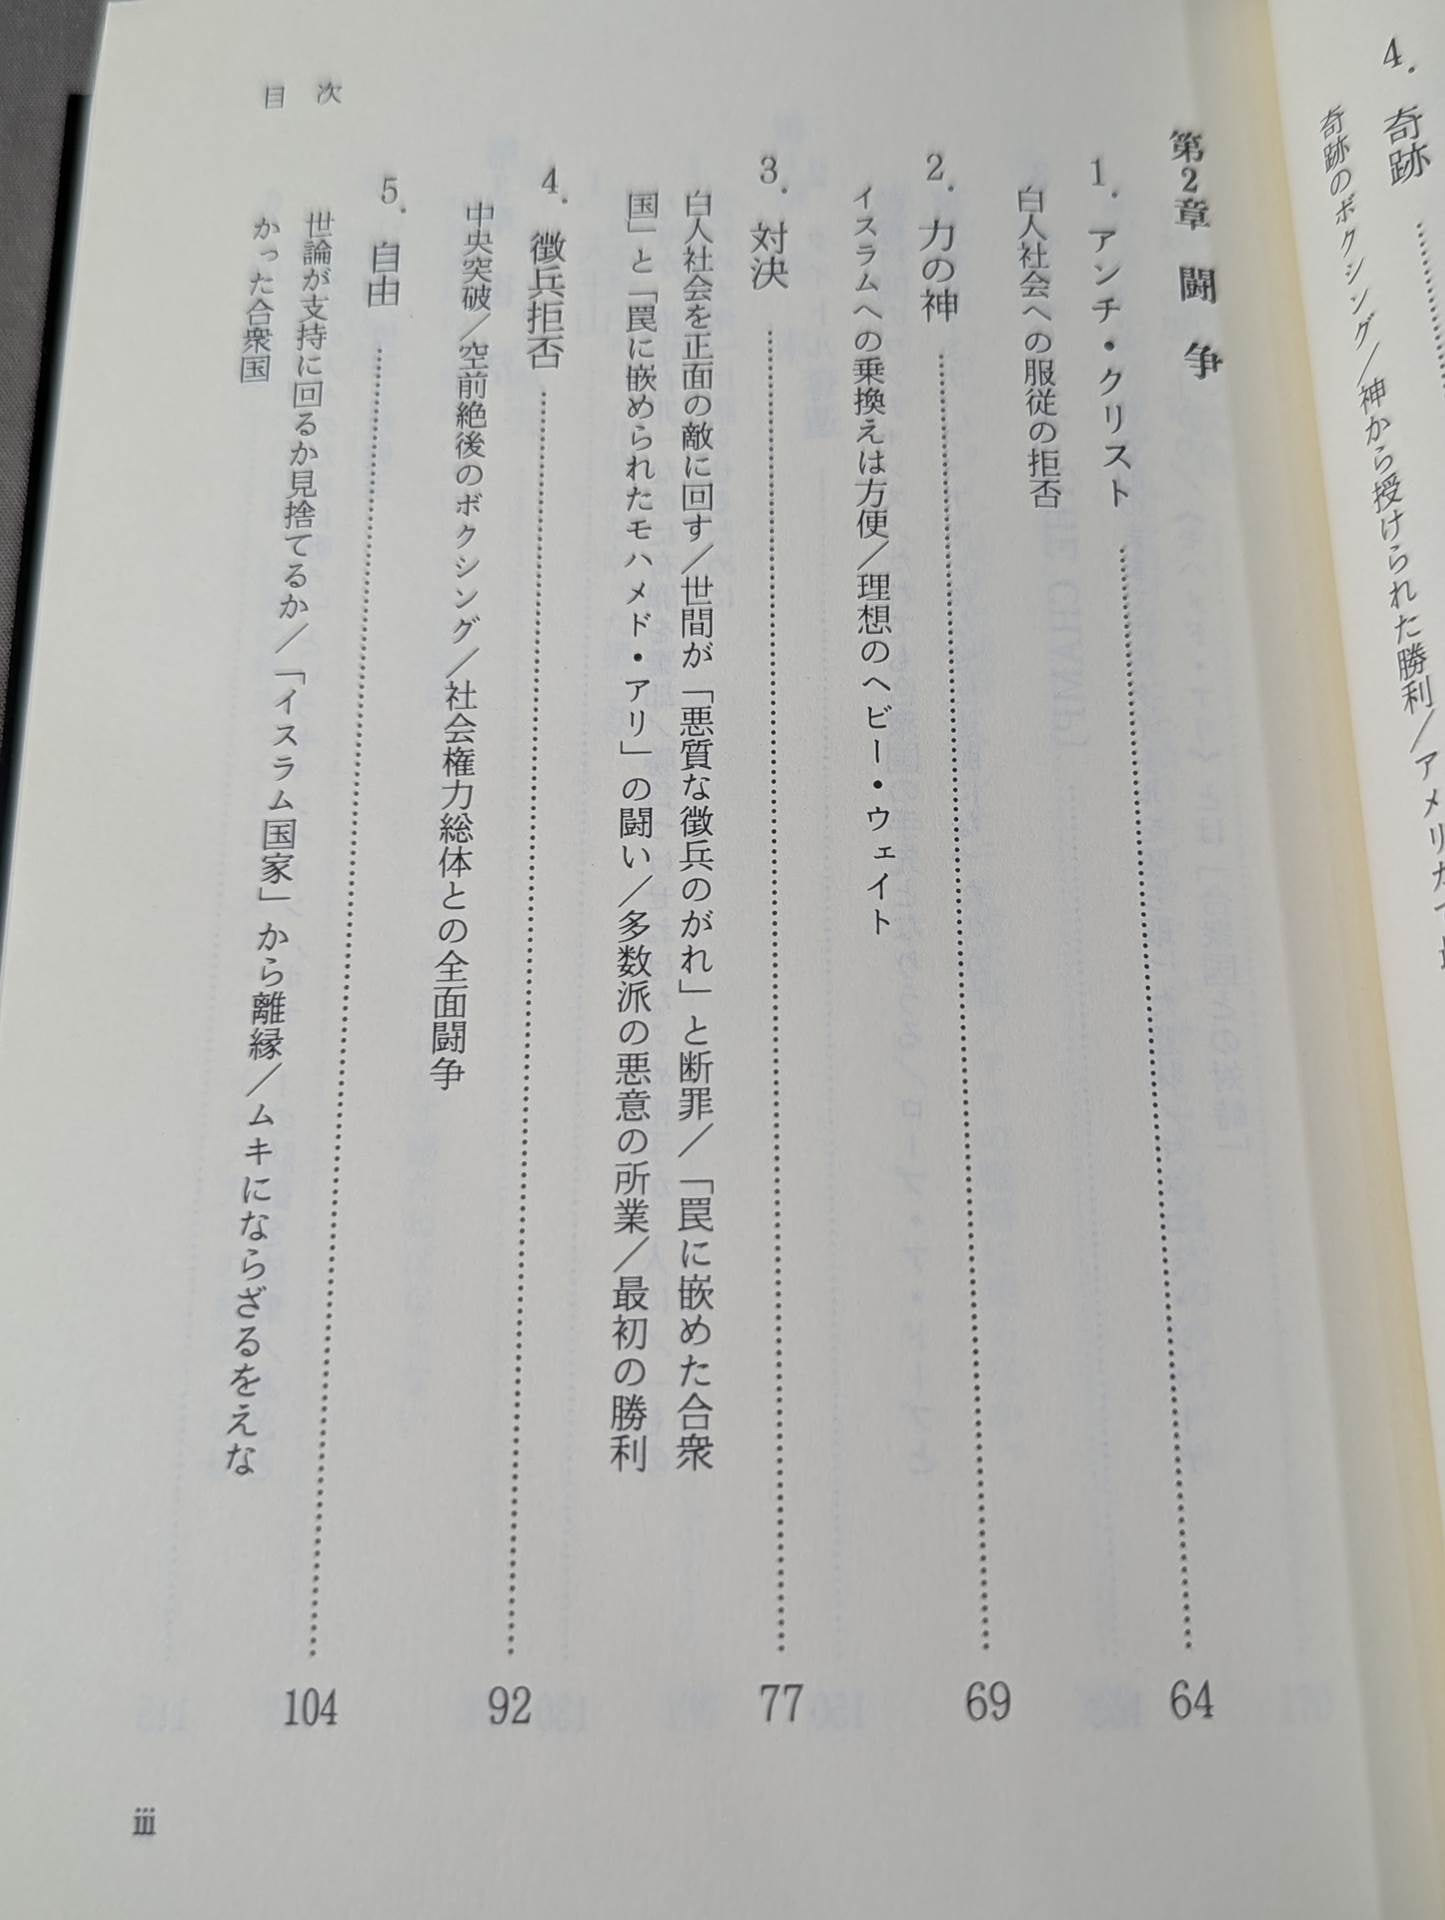 4. 奇跡
奇跡のボクシング/神から授けられた勝利/アメリカ
第2章 闘 争
1. アンチ・クリスト 64
白人社会への服従の拒否
2. 力の神 69
イスラムへの乗換えは方便/理想のヘビー・ウェイト
3. 対決 77
白人社会を正面の敵に回す/世間が「悪質な徴兵のがれ」と断罪/「罠に嵌めた合衆
国」と「罠に嵌められたモハメド・アリ」の闘い/多数派の悪意の所業/最初の勝利
4. 徴兵拒否 92
中央突破/空前絶後のボクシング/社会権力総体との全面闘争
5. 自由 104
世論が支持に回るか見捨てるか/「イスラム国家」から離縁/ムキにならざるをえな
かった合衆国
目 次
iii